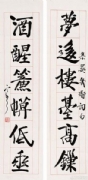 夢後樓臺高鎖
酒醒簾幕低垂